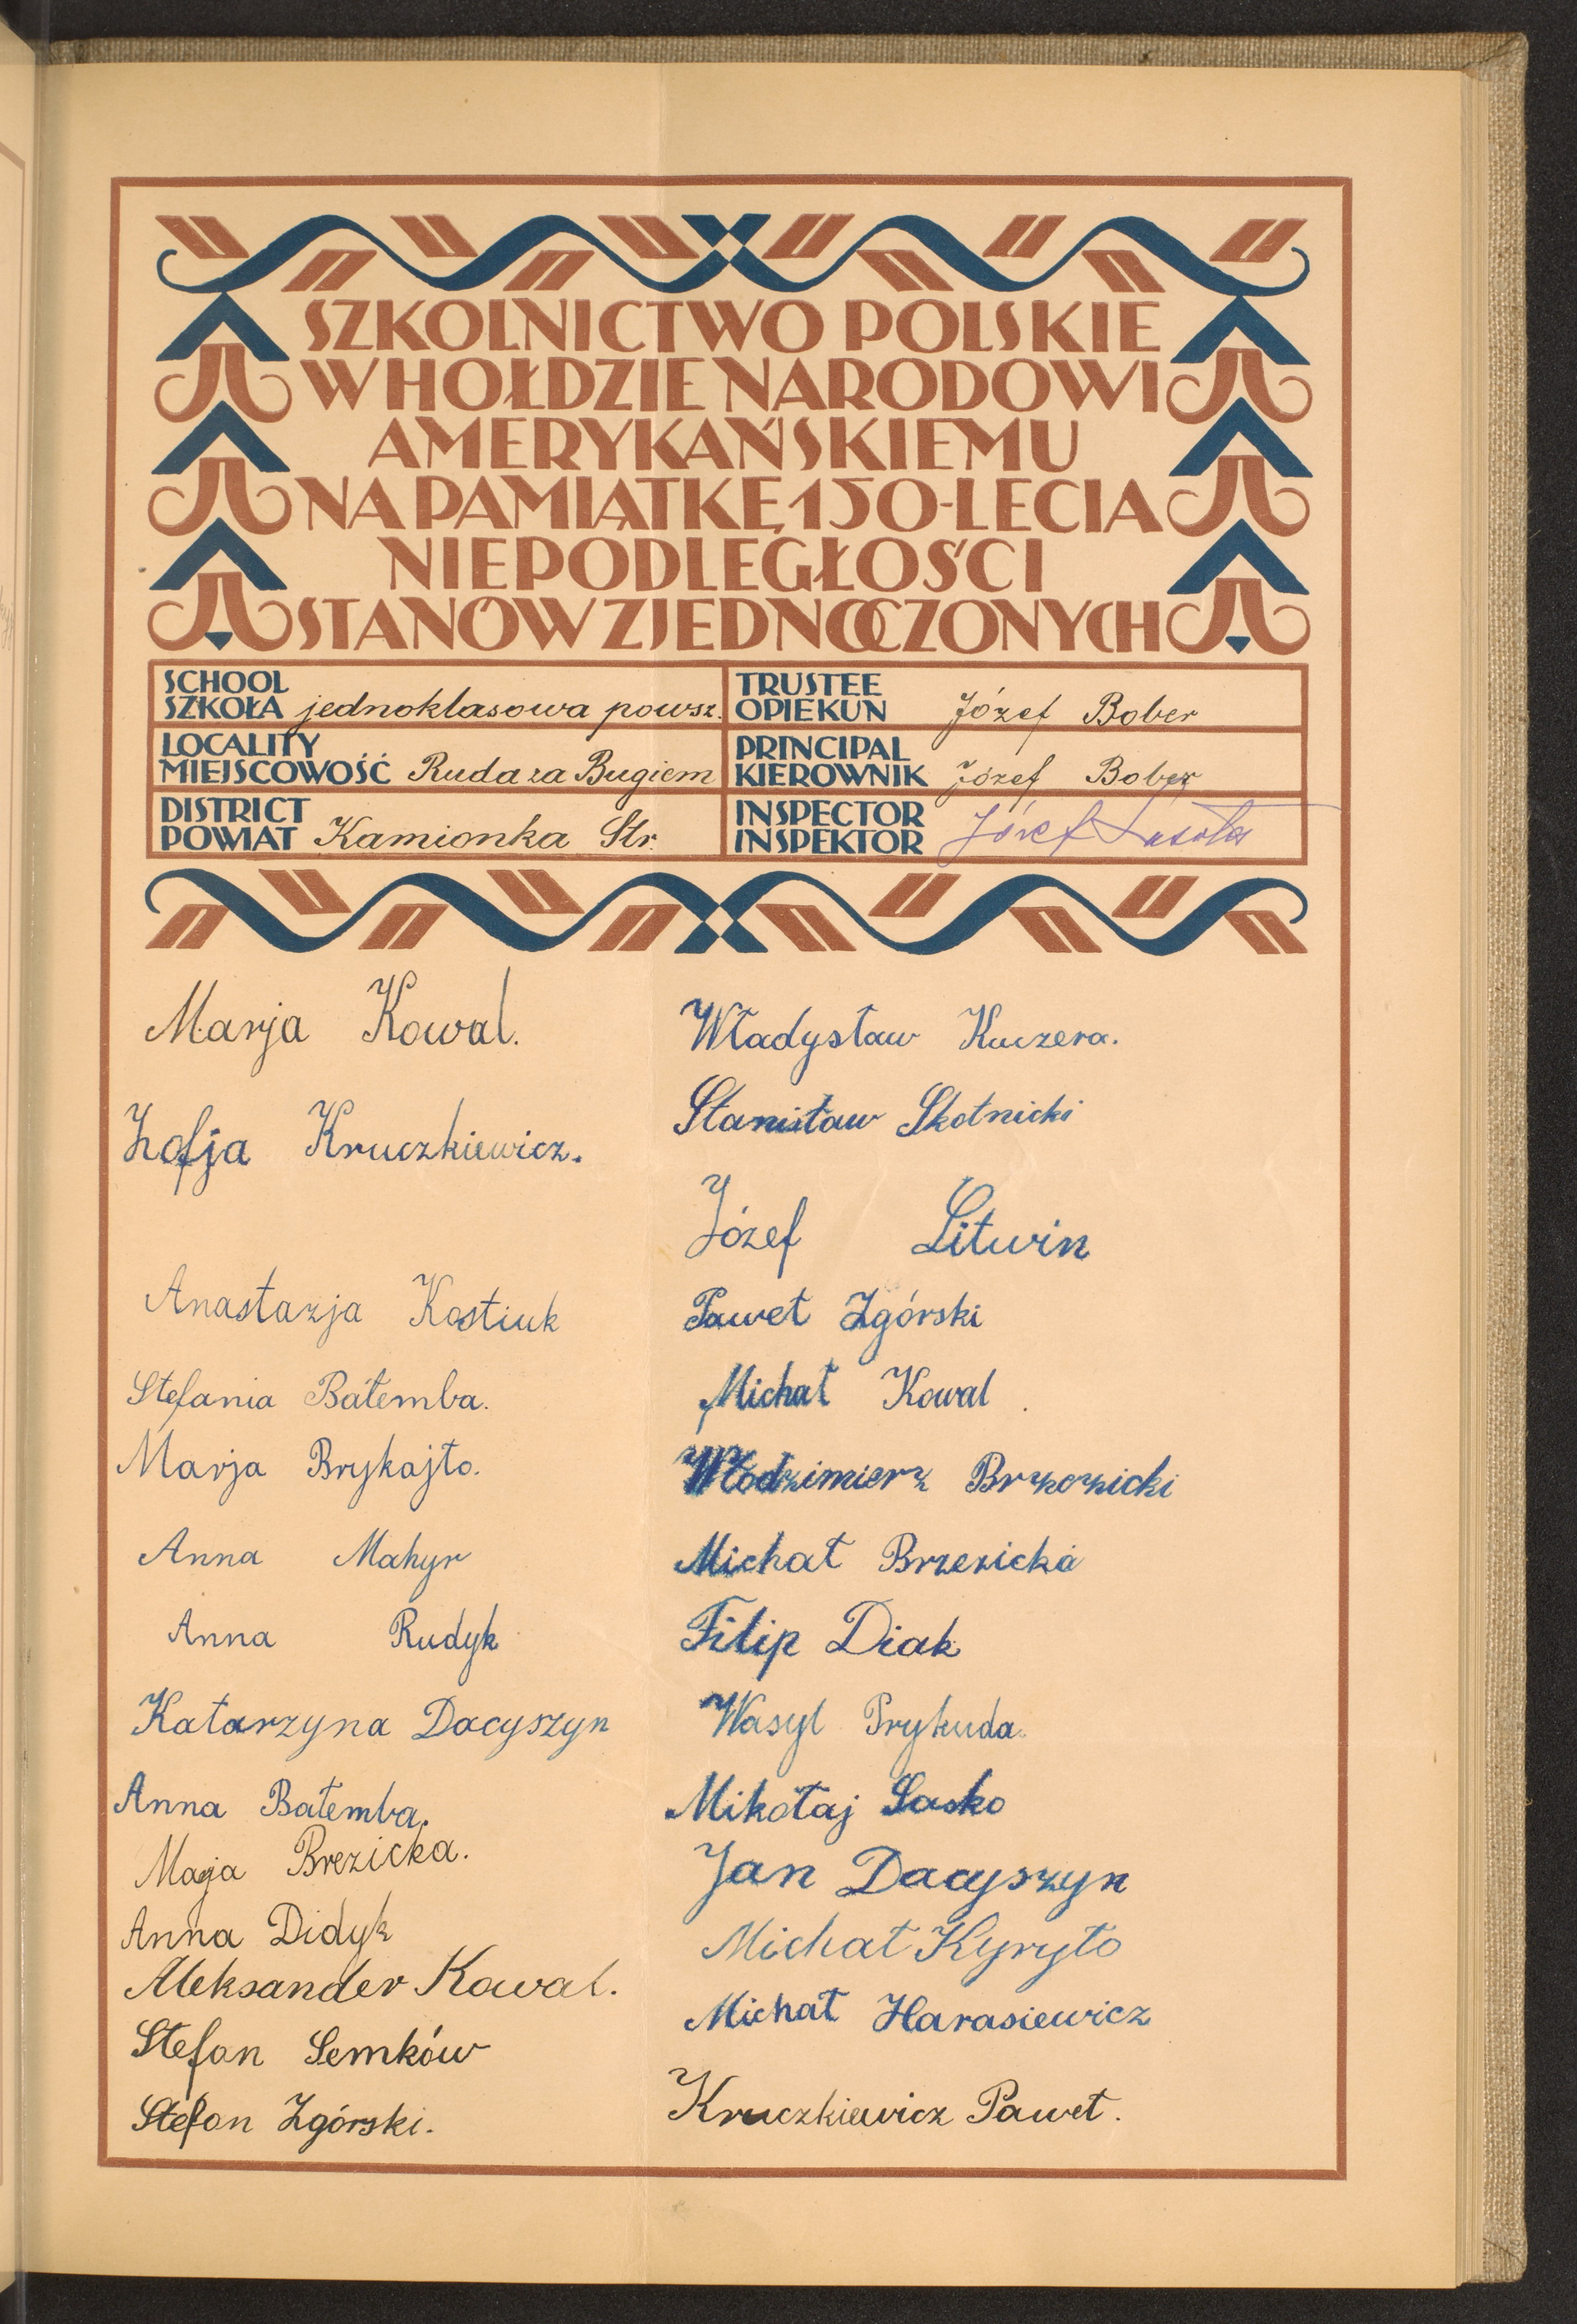 SZKOLNICTWO POLSKIE
W HOŁDZIE NARODOWI
AMERYKAŃSKIEMU
NA PAMIĄTKĘ 150-LECIA
NIEPODLEGŁOŚCI
STANÓW ZJEDNOCZONYCH
SCHOOL
SZKOŁA jednoklasowa powsz.
TRUSTEE
OPIEKUN Józef Bober
LOCALITY
MIEJSCOWOŚĆ Ruda za Bugiem
PRINCIPAL
KIEROWNIK Józef Bober
DISTRICT
POWIAT Kamionka Str.
INSPECTOR
INSPEKTOR Józef Lasota
Marja Kowal.
Zofja Kruczkiewicz.
Anastazja Kostiuk
Stefania Bałemba.
Marja Brykajło.
Anna Mahyr
Anna Rudyk
Katarzyna Dacyszyn
Anna Bałemba.
Marja Brezicka.
Anna Didyk
Aleksander Kowal.
Stefan Semków
Stefan Zgórski.
Władysław Kuczera.
Stanisław Skotnicki
Józef Litwin
Paweł Zgórski
Michał Kowal
Włodzimierz Brzozicki
Michał Brzezicki
Filip Diak
Wasyl Prykuda.
Mikołaj Sasko
Jan Dacyszyn
Michał Kyryło
Michał Harasiewicz
Kruczkiewicz Paweł.